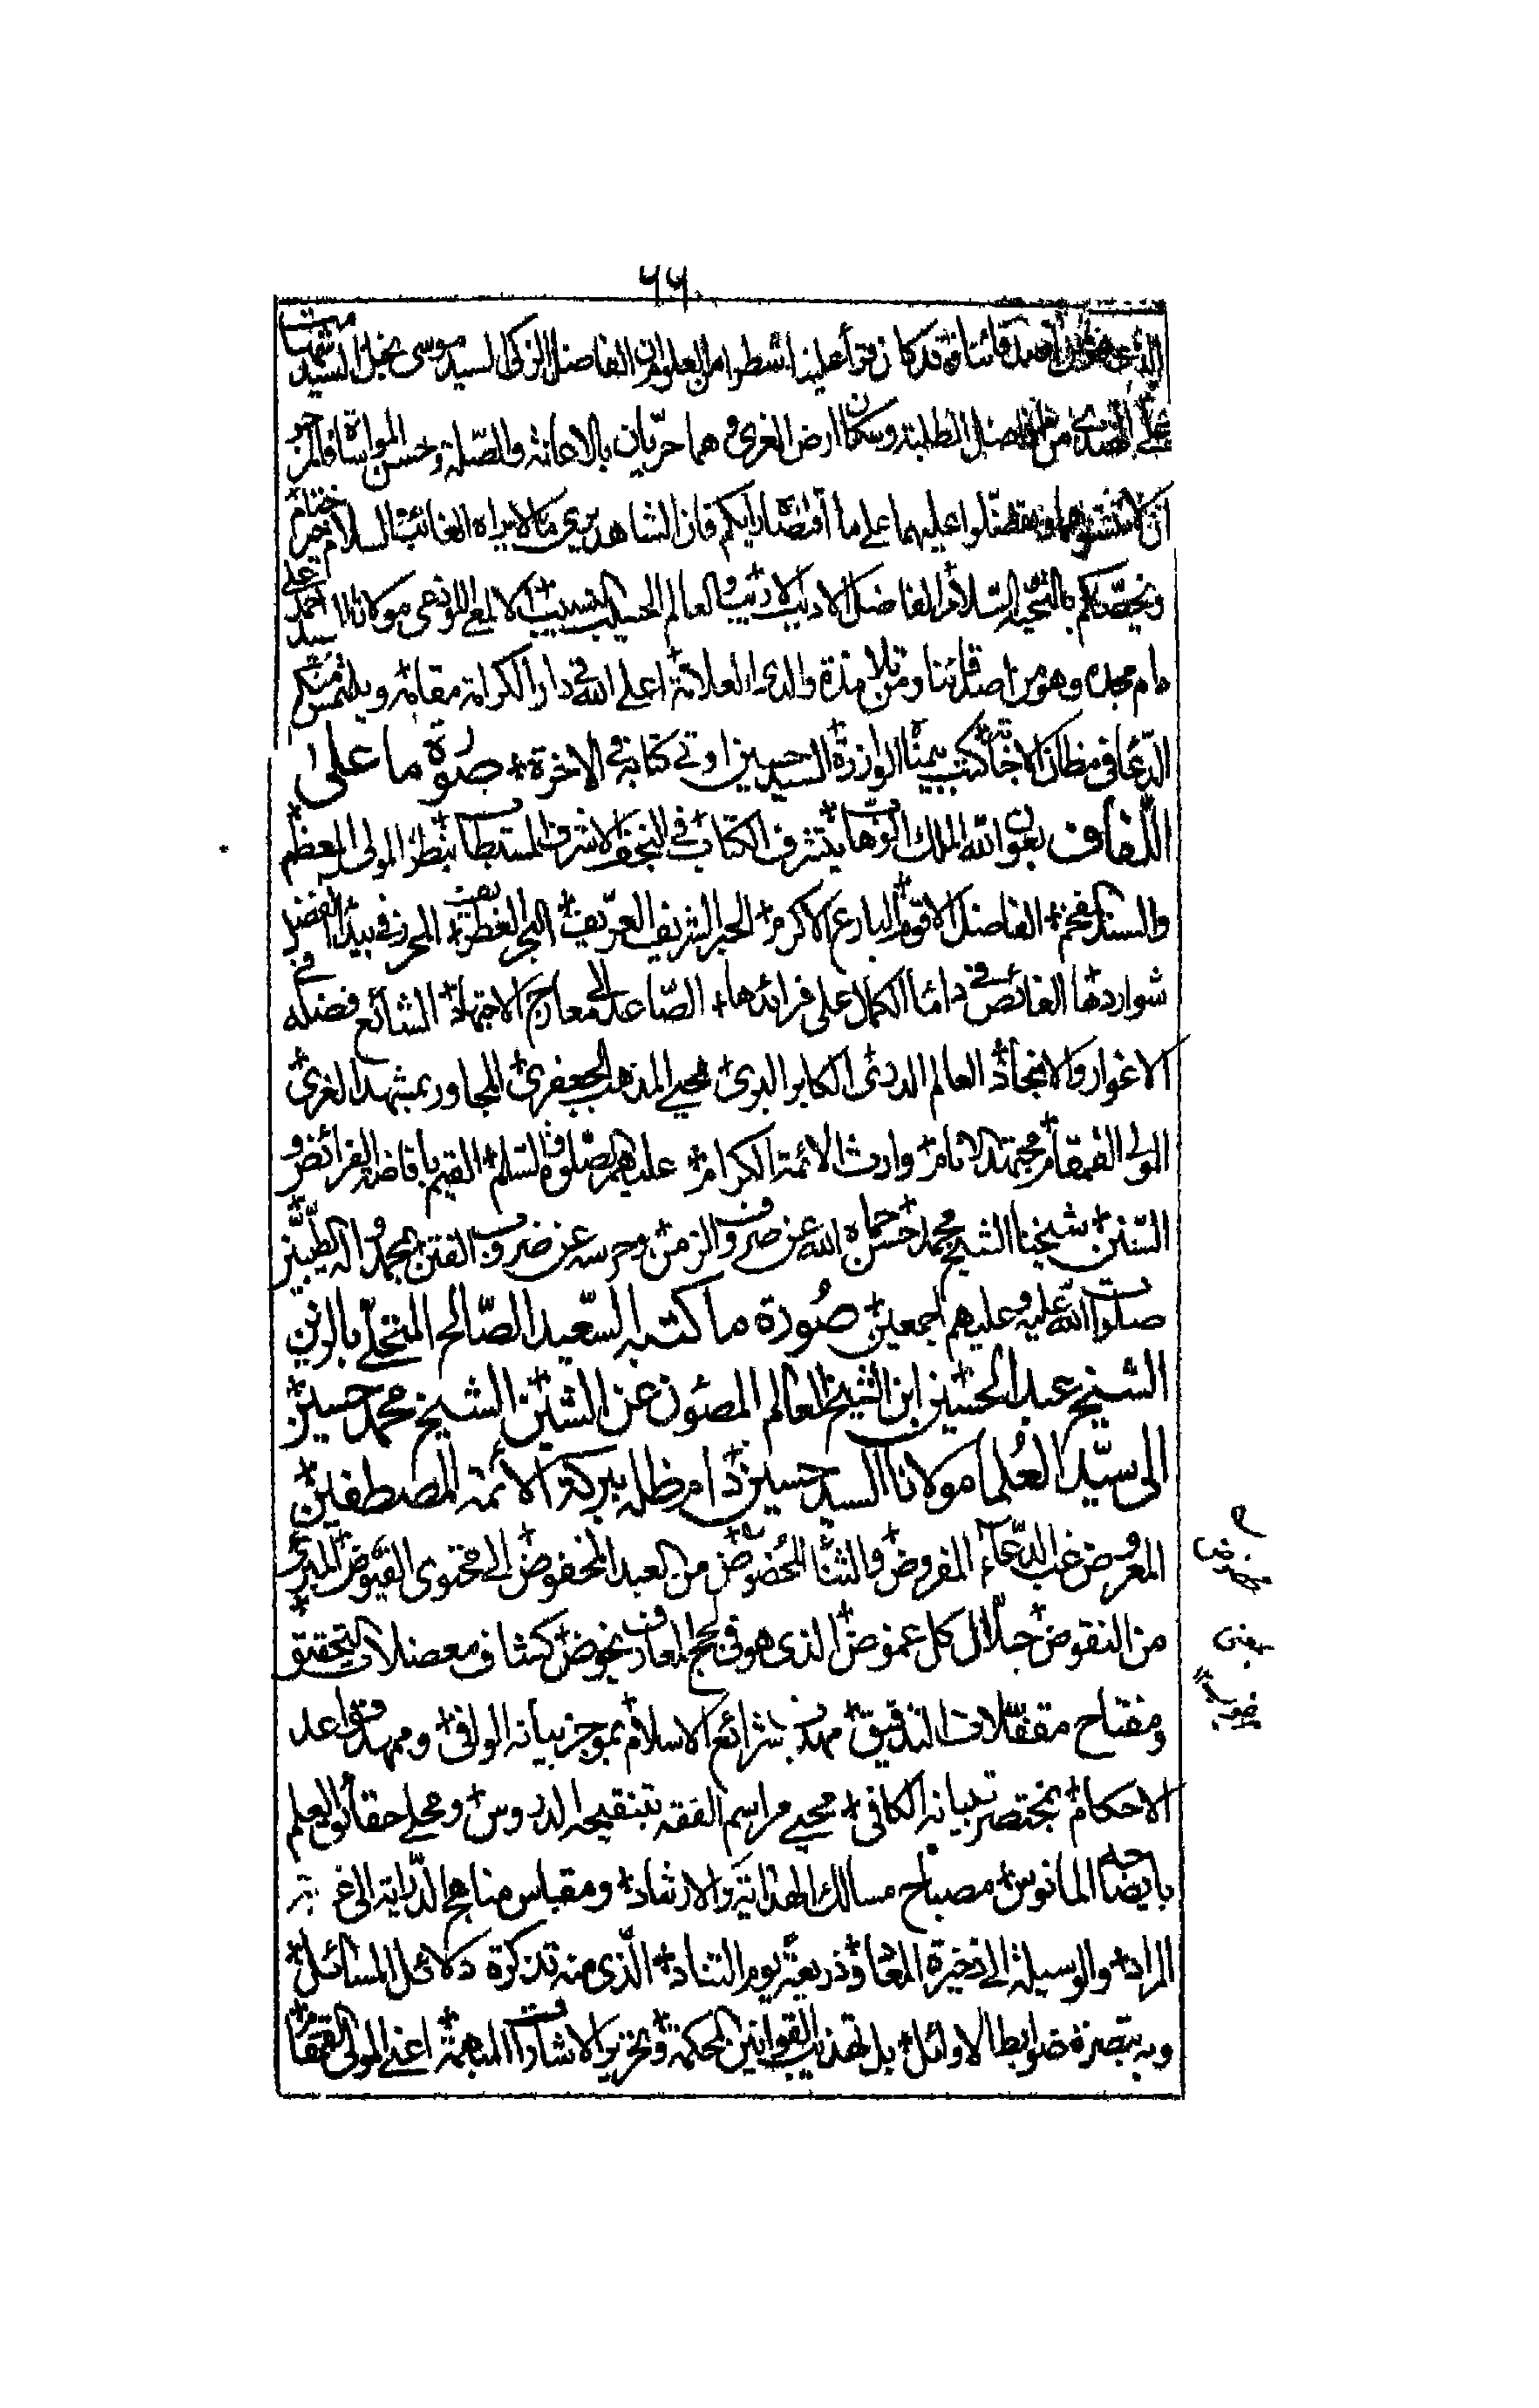 ۶۶
قد كان قرأ علينا شطرا من العلوم وان الفاضل الزكى السيد موسى نجل السيد
الطلبة وسكان ارض الغرى وهما حريان بالاعانة والصلة وحسن المواساة
عليهما على ما اقتضاه رايكم فان الشاهد يرى ما لا يراه الغائب والسلام خير ختام
ونخصكم بالتحية والسلام الفاضل الاديب الاريب والعالم الحسيب النسيب الالمعى اللوذعى مولانا السيد احمد على
دام مجده وهو من اصدقائنا ومن تلامذة والدى العلامة اعلى الله فى دار الكرامة مقامه ويلتمس منكم
الدعاء فى مظان الاجابة كتب بيمناه الوازرة السيد حسين اوتى كتابه فى الاخرة + صورة ما على
اللفاف بعون الله الملك الوهاب يتشرف الكتاب فى النجف الاشرف المستطاب بنظر المولى المعظم
والسند المفخم + الفاضل الاقوم البارع الاكرم + الحبر الشريف العريف + البحر الغطريف المحرز فى بيداء الفضل
شواردها الغائص فى داماء الكمال على فرائدها + الصاعد الى معارج الاجتهاد + الشائع فضله فى
الاغوار والانجاد + العالم الددئى الكابر البدى محيى المذهب الجعفرى + المجاور بمشهد الغرى
المولى القمقام مجتهد الانام + وارث الائمة الكرام + عليهم الصلوة والسلم + القيم بافاضة الفرائض و
السنن + شيخنا الشيخ محمد حسن حماه الله عن صروف الزمن + وحرسه عن ضروب الفتن بمحمد واله الطيبين
صلوات الله عليه وعليهم اجمعين + صورة ما كتبه السعيد الصالح المتحلى بالزين
الشيخ عبد الحسين ابن الشيخ العالم المصون عن الشين + الشيخ محمد حسين +
الى سيد العلما مولانا السيد حسين دام ظله ببركة الائمة المصطفين +
المعروض غب الدعاء المفروض + والثناء المخضوض + من العبد المخفوض الى محتوى الفيوض + المبرى
من النقوض + حلال كل غموض + الذى هو فى لجج المعارف يخوض + كشاف معضلات التحقيق +
ومفتاح مقفلات التدقيق + مهذب شرائع الاسلام بموجز بيانه الوافى + وممهد قواعد
الاحكام + بمختصر تبيانه الكافى + محيى مراسم الفقه بتنقيحه الدروس + ومجلى حقائق العلم
بايضاحه المانوس + مصباح مسالك الهداية والارشاد + ومقباس مناهج الدراية الى غاية
المراد + والوسيلة الى ذخيرة المعاد وذريعة يوم التناد + الذى منه تذكرة دلائل المسائل +
وبه تبصرة ضوابط الاوائل + بل تهذيب القوانين المحكمة + وتحرير الاشارات المبهمة + اعنى المولى القمقام +
يعنى